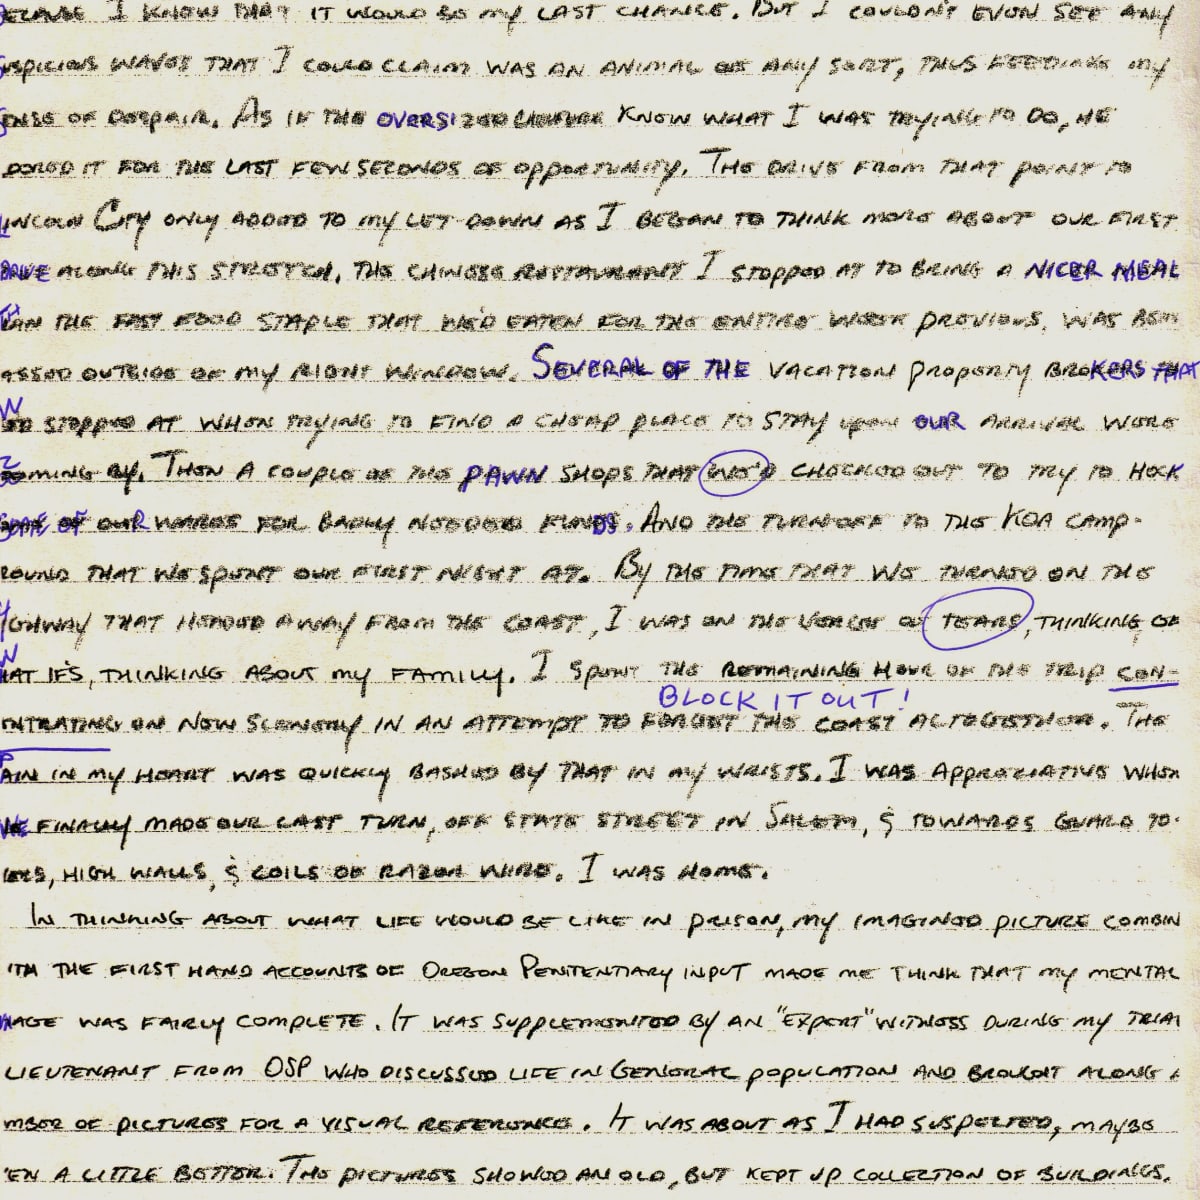 ECAUSE I KNOW THAT IT WOULD BE MY LAST CHANCE. BUT I COULDN'T EVEN SEE ANY
USPICIOUS WAVES THAT I COULD CLAIM WAS AN ANIMAL OF ANY SORT, THUS FEEDING MY
SENSE OF DESPAIR. AS IF THE OVERSIZED KNEW WHAT I WAS TRYING TO DO, HE
IT FOR THE LAST FEW SECONDS OF OPPORTUNITY. THE DRIVE FROM THAT POINT TO
LINCOLN CITY ONLY ADDED TO MY LET-DOWN AS I BEGAN TO THINK MORE ABOUT OUR FIRST
DRIVE ALONG THIS STRETCH. THE CHINESE RESTAURANT I STOPPED AT TO BRING A NICER MEAL
THAN THE FAST FOOD STAPLE THAT WE'D EATEN FOR THE ENTIRE WEEK PREVIOUS, WAS
ASSED OUTSIDE OF MY RIGHT WINDOW. SEVERAL OF THE VACATION PROPERTY BROKERS THAT
STOPPED AT WHEN TRYING TO FIND A CHEAP PLACE TO STAY UPON OUR ARRIVAL WERE
OMING BY. THEN A COUPLE OF THE PAWN SHOPS THAT WE'D CHECKED OUT TO TRY TO HOCK
SOME OF OUR WARES FOR BADLY NEEDED FUNDS. AND THE TURN-OFF TO THE KOA CAMP-
ROUND THAT WE SPENT OUR FIRST NIGHT AT. BY THE TIME THAT WE TURNED ON THE
HIGHWAY THAT HEADED AWAY FROM THE COAST, I WAS ON THE VERGE OF TEARS, THINKING OF
WHAT IF'S, THINKING ABOUT MY FAMILY. I SPENT THE REMAINING HOUR OF THE TRIP CON-
BLOCK IT OUT!
ENTRATING ON NEW SCENERY IN AN ATTEMPT TO FORGET THE COAST ALTOGETHER. THE
PAIN IN MY HEART WAS QUICKLY BASHED BY THAT IN MY WRISTS. I WAS APPRECIATIVE WHEN
WE FINALLY MADE OUR LAST TURN, OFF STATE STREET IN SALEM, & TOWARDS GUARD TO-
ERS, HIGH WALLS, & COILS OF RAZOR WIRE. I WAS HOME.
IN THINKING ABOUT WHAT LIFE WOULD BE LIKE IN PRISON, MY IMAGINED PICTURE COMBIN
ITH THE FIRST HAND ACCOUNTS OF OREGON PENITENTIARY INPUT MADE ME THINK THAT MY MENTAL
MAGE WAS FAIRLY COMPLETE. IT WAS SUPPLEMENTED BY AN "EXPERT" WITNESS DURING MY TRIAL
LIEUTENANT FROM OSP WHO DISCUSSED LIFE IN GENERAL POPULATION AND BROUGHT ALONG A
MBER OF PICTURES FOR A VISUAL REFERENCE. IT WAS ABOUT AS I HAD SUSPECTED, MAYBE
EN A LITTLE BETTER. THE PICTURES SHOWED AN OLD, BUT KEPT UP COLLECTION OF BUILDINGS.